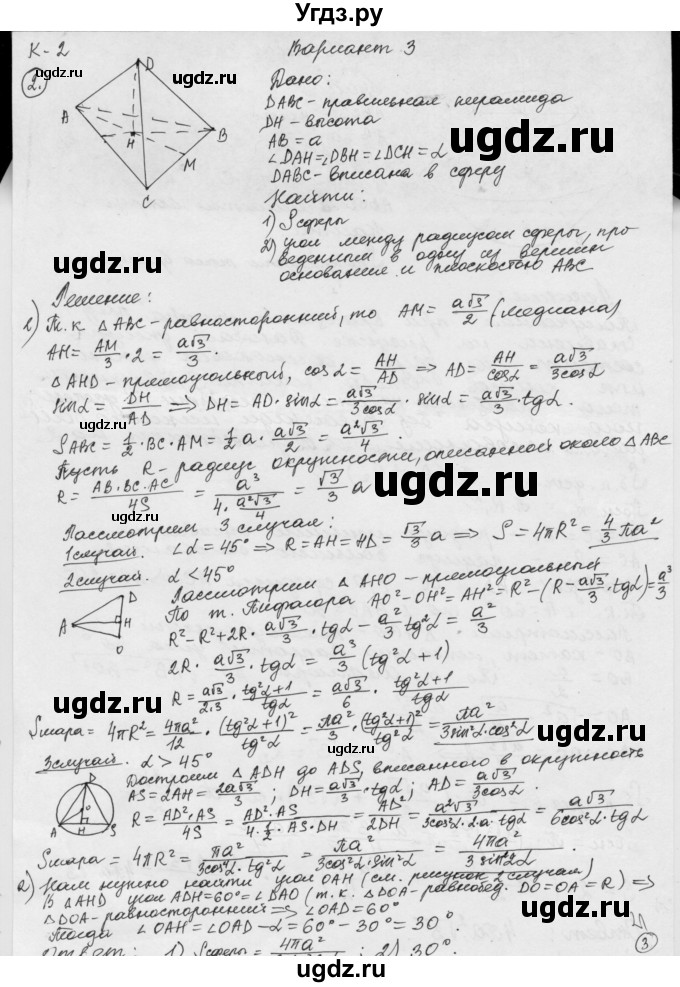 Угдз.ру
К-2
Вариант 3
2.
Дано:
DABC - правильная пирамида
DH - высота
AB = a
∠DAH = ∠DBH = ∠DCH = α
DABC - вписана в сферу
Найти:
1) Sсферы
2) угол между радиусом сферы, про
веденным в одну из вершин
основание и плоскостью ABC
D
A
B
H
M
C
Решение:
1) Т.к △ABC - равносторонний, то AM = a√3/2 (медиана)
AH = AM/3 · 2 = a√3/3.
△AHD - прямоугольный, cosα = AH/AD ⇒ AD = AH/cosα = a√3/3cosα
sinα = DH/AD ⇒ DH = AD · sinα = a√3/3cosα · sinα = a√3/3 · tgα.
SABC = 1/2 · BC · AM = 1/2 a · a√3/2 = a²√3/4
Пусть R - радиус окружности, описанной около △ABC
R = AB·BC·AC/4S = a³/4·a²√3/4 = √3/3 a
Рассмотрим 3 случая:
1 случай. ∠α = 45° ⇒ R = AH = HD = √3/3 a ⇒ S = 4πR² = 4/3 πa²
2 случай. α < 45°
Рассмотрим △AHO - прямоугольный
По т. Пифагора AO² - OH² = AH² = R² - (R - a√3/3 · tgα) = a³/3
D
A
H
O
R² - R² + 2R · a√3/3 · tgα - a²/3 tg²α = a²/3
2R · a√3/3 · tgα = a³/3 (tg²α + 1)
R = a√3/2·3 · tg²α+1/tgα = a√3/6 · tg²α+1/tgα
Sшара = 4πR² = 4πa²/12 · (tg²α+1)²/tg²α = πa²/3 · (tg²α+1)²/tg²α = πa²/3sin²α·cos²α
3 случай. α > 45°
Достроим △ADH до ADS, вписанного в окружность
AS = 2AH = 2a√3/3; DH = a√3/3 · tgα; AD = a√3/3cosα.
D
O
A
H
S
R = AD²·AS/4S = AD²·AS/4·1/2·AS·DH = AD²/2DH = a²√3/3cos²α·2·a·tgα = a√3/6cos²α·tgα
Sшара = 4πR² = πa²/3cos⁴α·tg²α = πa²/3cos²α·sin²α = 4πa²/3sin²2α.
2) Нам нужно найти угол OAH (см. рисунок 2 случая)
В △AHD угол ADH = 60° = ∠DAO (т.к. △DOA - равнобед. DO = OA = R) ⇒
△DOA - равносторонний ⇒ ∠OAD = 60°
Тогда ∠OAH = ∠OAD - α = 60° - 30° = 30°.
Ответ: 1) Sсферы = 4πa² ; 2) 30°.
3
uгdz.ru
uгdz.ru
uгdz.ru
uгdz.ru
uгdz.ru
uгdz.ru
uгdz.ru
uгdz.ru
uгdz.ru
uгdz.ru
uгdz.ru
uгdz.ru